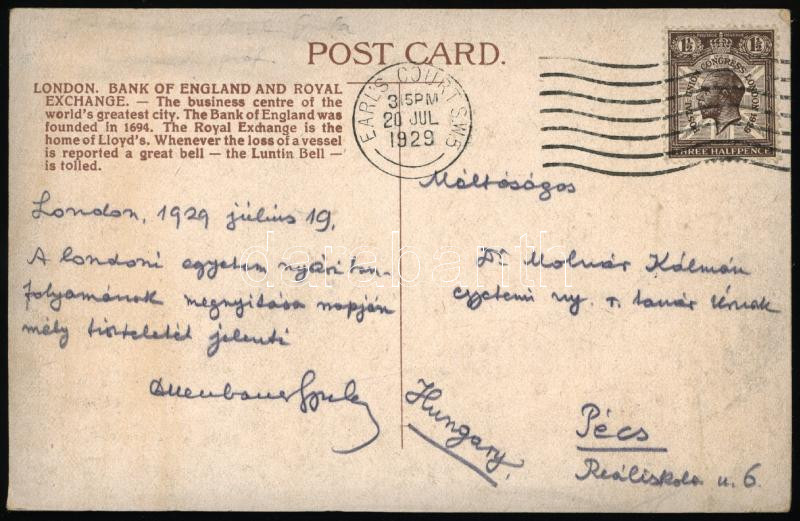 POST CARD.
LONDON. BANK OF ENGLAND AND ROYAL
EXCHANGE. — The business centre of the
world's greatest city. The Bank of England was
founded in 1694. The Royal Exchange is the
home of Lloyd's. Whenever the loss of a vessel
is reported a great bell — the Luntin Bell —
is tolled.
London, 1929 július 19.
A londoni egyetem nyári tan-
folyamának megnyitása napján
mély tiszteletét jelenti
Gyula
EARL'S COURT S.W.5
3.15PM
20 JUL
1929
1½ 1½
POSTAL UNION CONGRESS LONDON 1929
THREE HALFPENCE
Méltóságos
Dr Molnár Kálmán
egyetemi ny. r. tanár Úrnak
Pécs
Reáliskola u. 6.
Hungary
darabanth